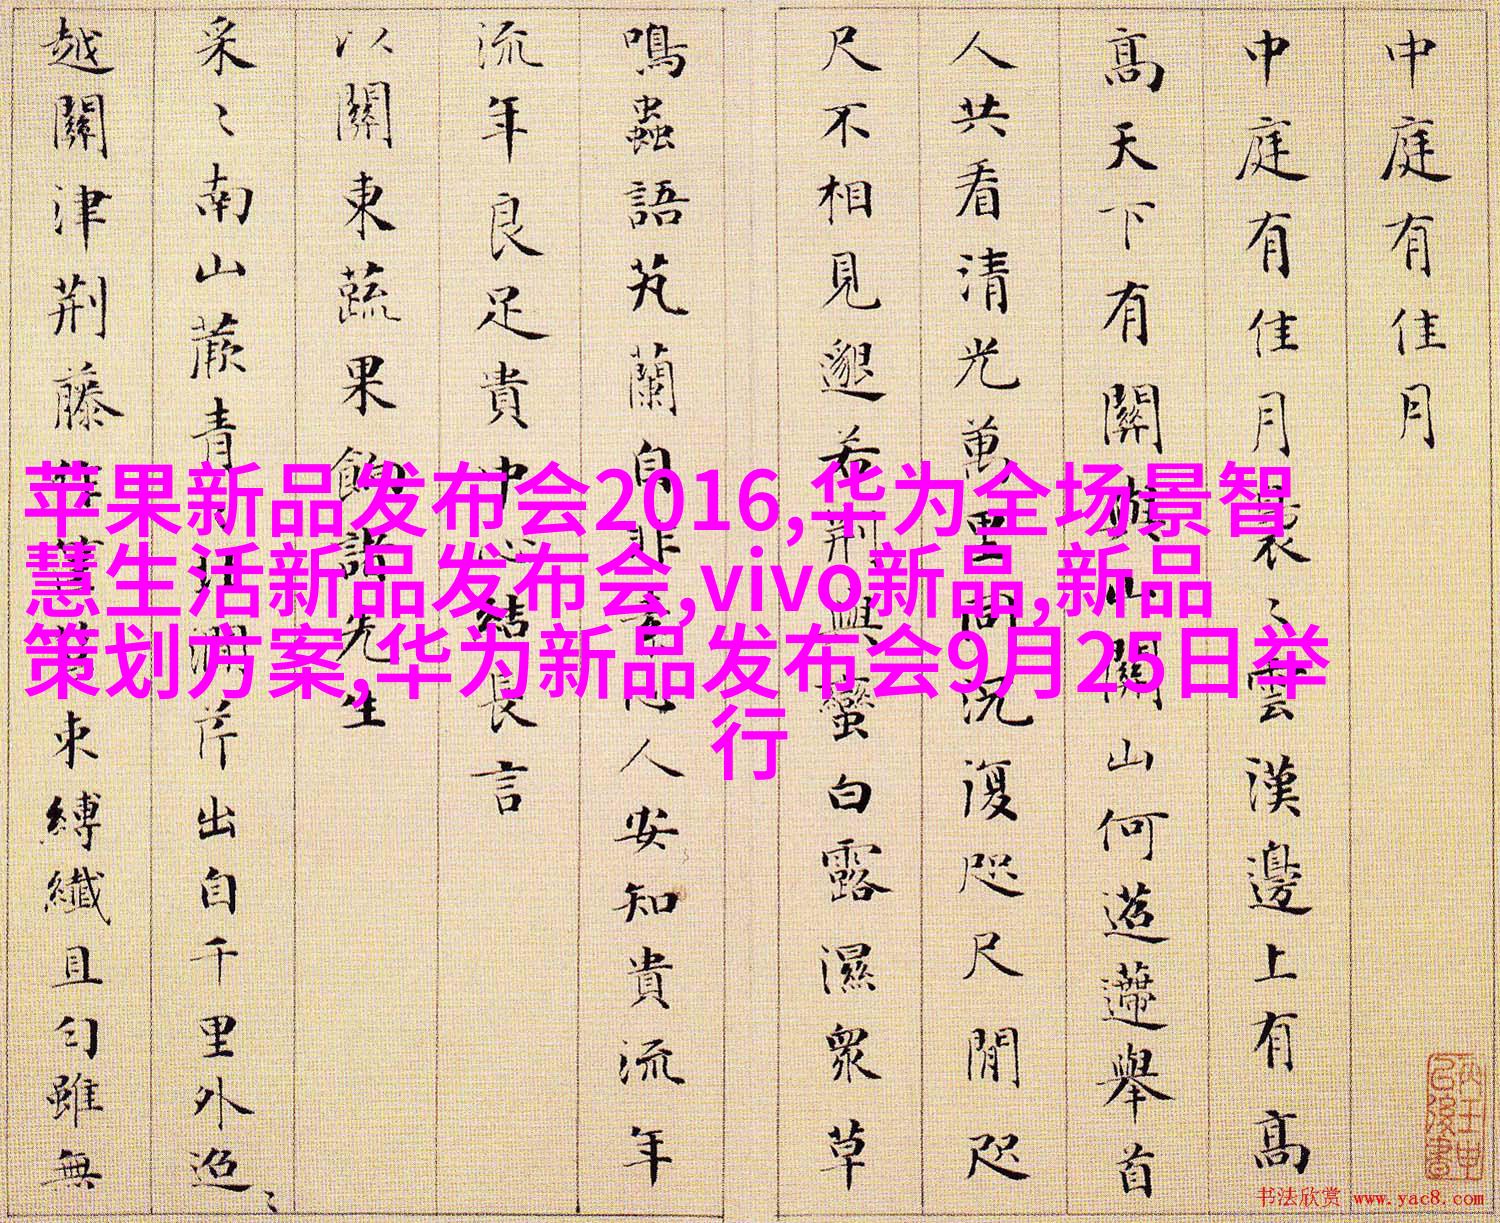 中庭有佳月
中庭有佳月裊〻雲漢邊上有高
高天下有關山關山何迢遰舉首
人共看清光萬里同況復咫尺間咫
尺不相見邈若荆與蠻白露濕衆草
鳴蟲語芄蘭自非人安知貴流年
流年良足貴中心結長言
以關東蔬果餉諸先生
采〻南山蕨青芹出自千里外迢〻
越關津荆藤束縛纖且勻雖無
苹果新品发布会2016,华为全场景智
慧生活新品发布会,vivo新品,新品
策划方案,华为新品发布会9月25日举
行
书法欣赏 www.yac8.com